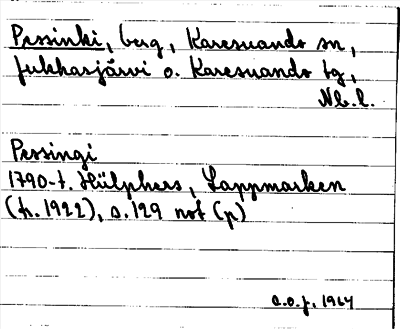 Pessinki, berg, Karesuando sn,
Jukkasjärvi o. Karesuando tg,
Nb. l.
Pessingi
1790-t. Hülphers, Lappmarken
(tr. 1922), s. 129 not (p)
a.o.f. 1964